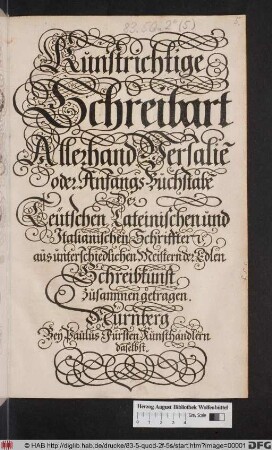 83.5 Quod. 2° (5)
Kunstrichtige
Schreibart
Allerhand Versalie͂
oder Anfangs-Buchstabe͂
Der
Teütschen, Lateinischen und
Italianischen Schrifften
aus unterschiedlichen Meistern der Edlen
Schreibkunst
zusammen getragen.
Nürnberg
Bey Paulus Fürsten Kunsthandlern
daselbst.
Herzog August Bibliothek Wolfenbüttel
© HAB http://diglib.hab.de/drucke/83-5-quod-2f-5s/start.htm?image=00001
DFG